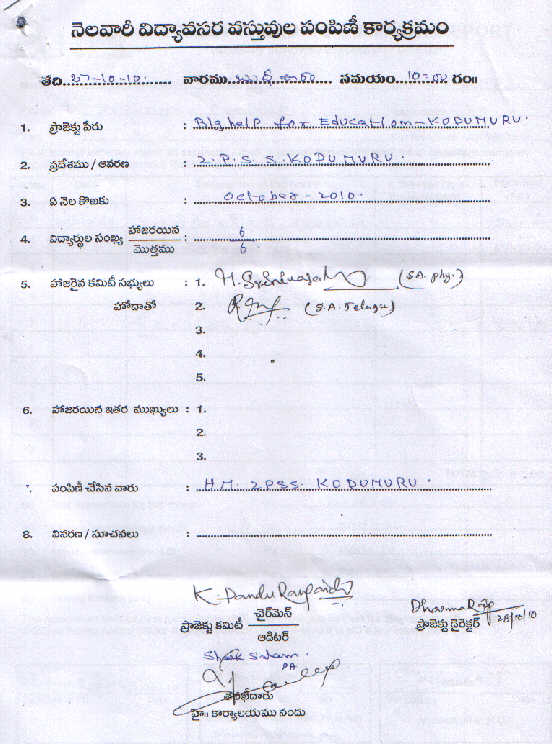 నెలవారీ విద్యావసర వస్తువుల పంపిణీ కార్యక్రమం
తది..27-10-10... వారము..బుధవారం... సమయం..10-00 గం॥
1. ప్రాజెక్టు పేరు : Big help for Education - KODUMURU.
2. ప్రదేశము / ఆవరణ : Z.P.S.S. KODUMURU.
3. ఏ నెల కొఱకు : October - 2010.
4. విద్యార్థుల సంఖ్య హాజరయిన : 6
మొత్తము 6
5. హాజరైన కమిటీ సభ్యులు : 1. (S.A. Phy.)
హోదాతో 2. (S.A. Telugu)
3.
4.
5.
6. హాజరయిన ఇతర ముఖ్యులు : 1.
2.
3.
పంపిణీ చేసిన వారు : H.M. ZPSS. KODUMURU.
8. వివరణ / సూచనలు :
K. Pandu Rangaiah
ప్రాజెక్టు కమిటీ చైర్‌మెన్
ఆడిటర్
Dharma Rao
ప్రాజెక్టు డైరెక్టర్ 28/10/10
Shaik Salam.
PA
తనిఖీదారు
హై॥ కార్యాలయము నందు